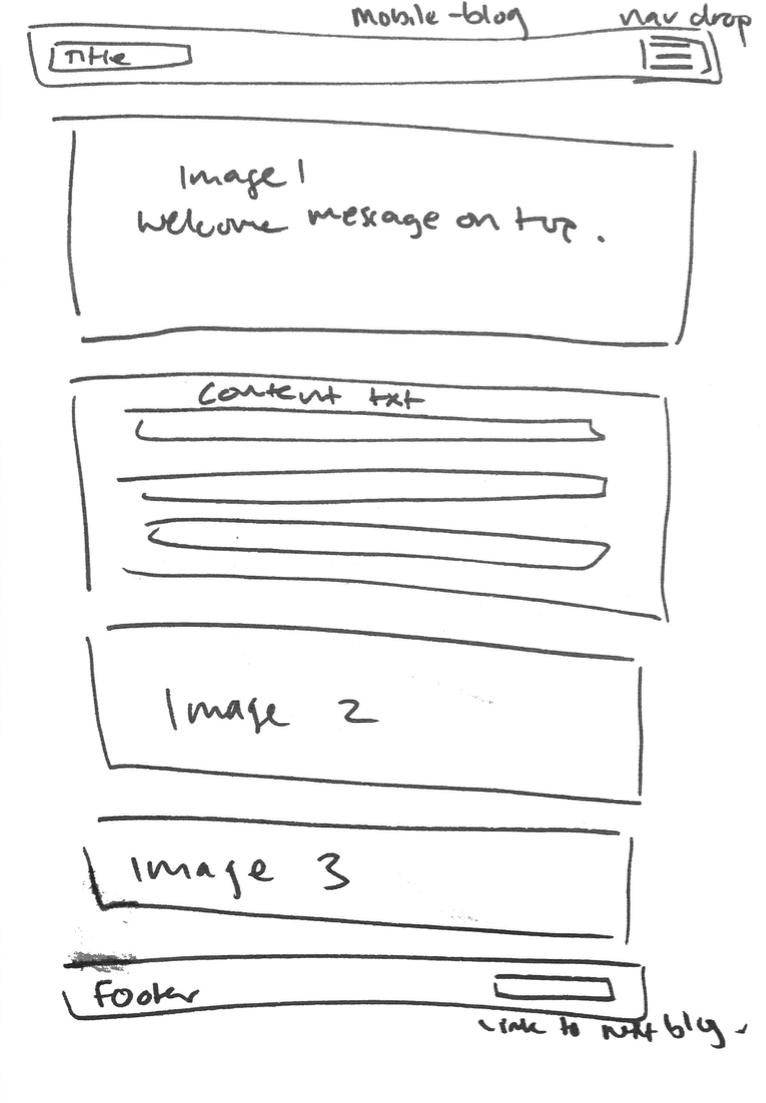 mobile-blog
nav drop
Title
Image 1
Welcome message on top.
Content txt
Image 2
Image 3
Footer
Link to next blog.